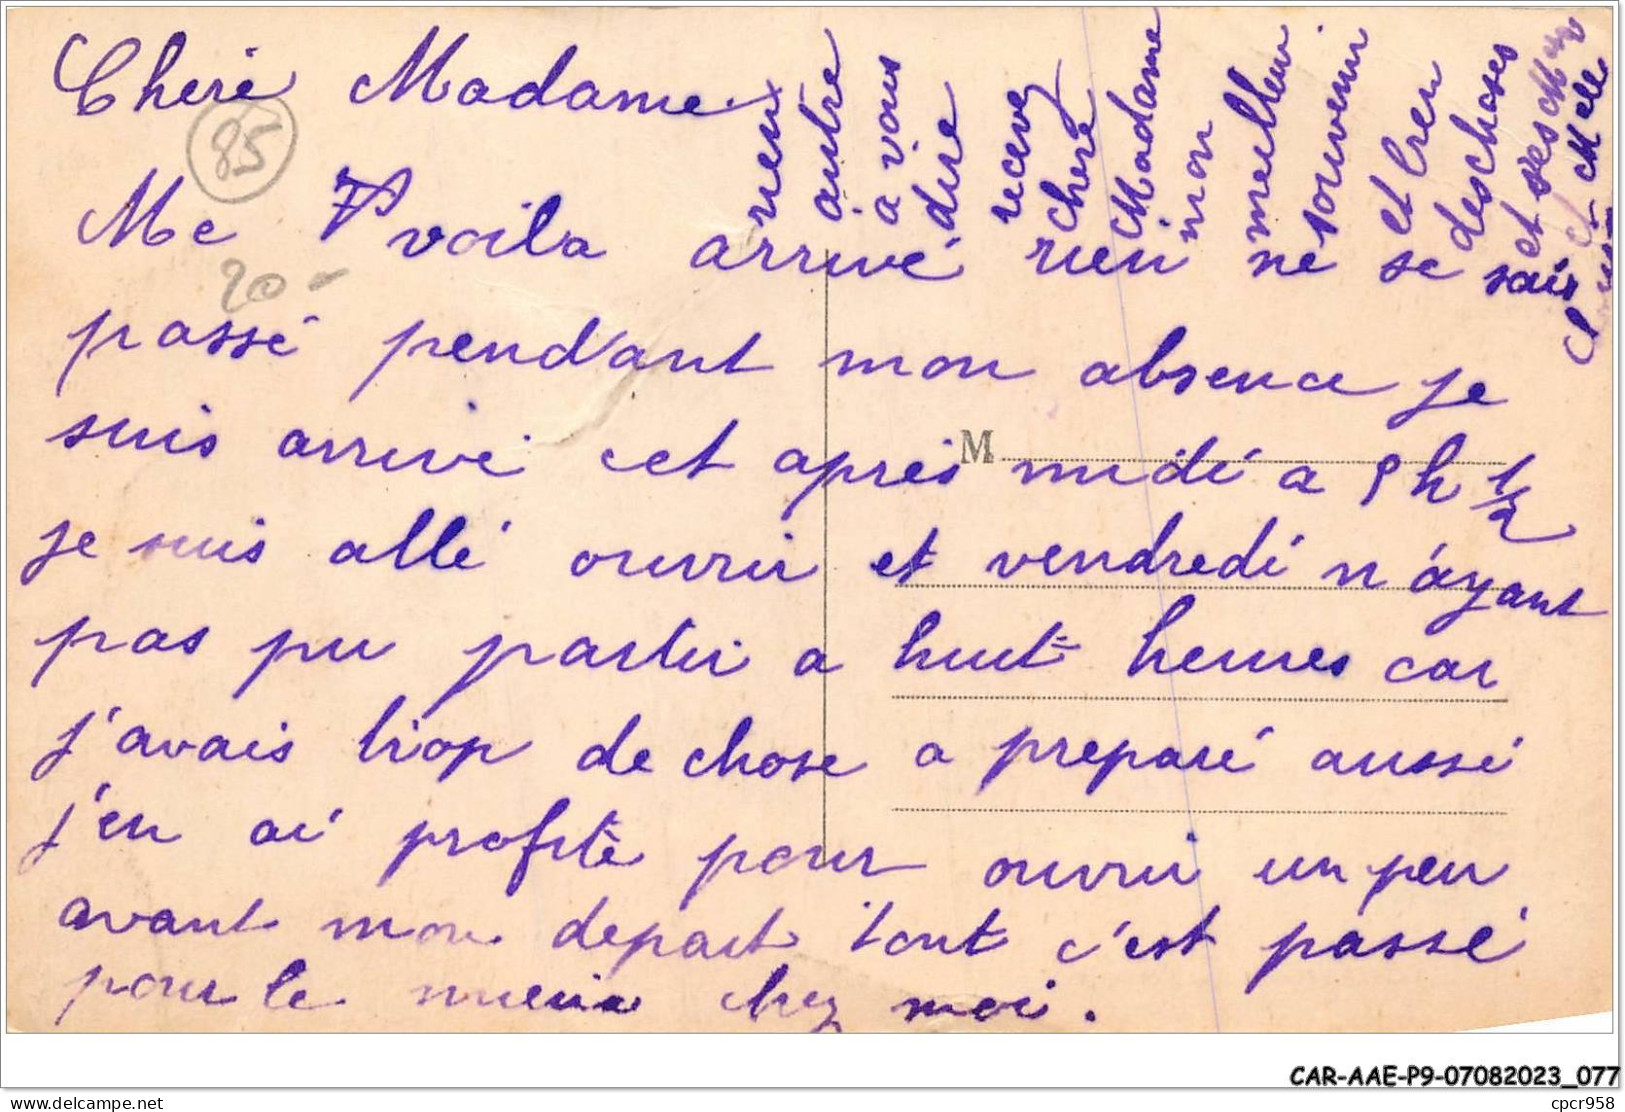 Cheré Madame
Me voila arrivé rien ne se
passé pendant mon absence je
suis arrivé cet après midi a 5h 1/2
je suis allé ouvrir et vendredi n'ayant
pas pu partir a huit heures car
j'avais trop de chose a preparé aussi
j'en ai profité pour ouvrir un peu
avant mon depart tout c'est passé
pour le mieux chez moi.
rien
autre
a vous
dire
recevez
cheré
Madame
mon
meilleur
souvenir
et bien
des choses
et Melle
M
85
20-
CAR-AAE-P9-07082023_077
delcampe.net
cpcr958